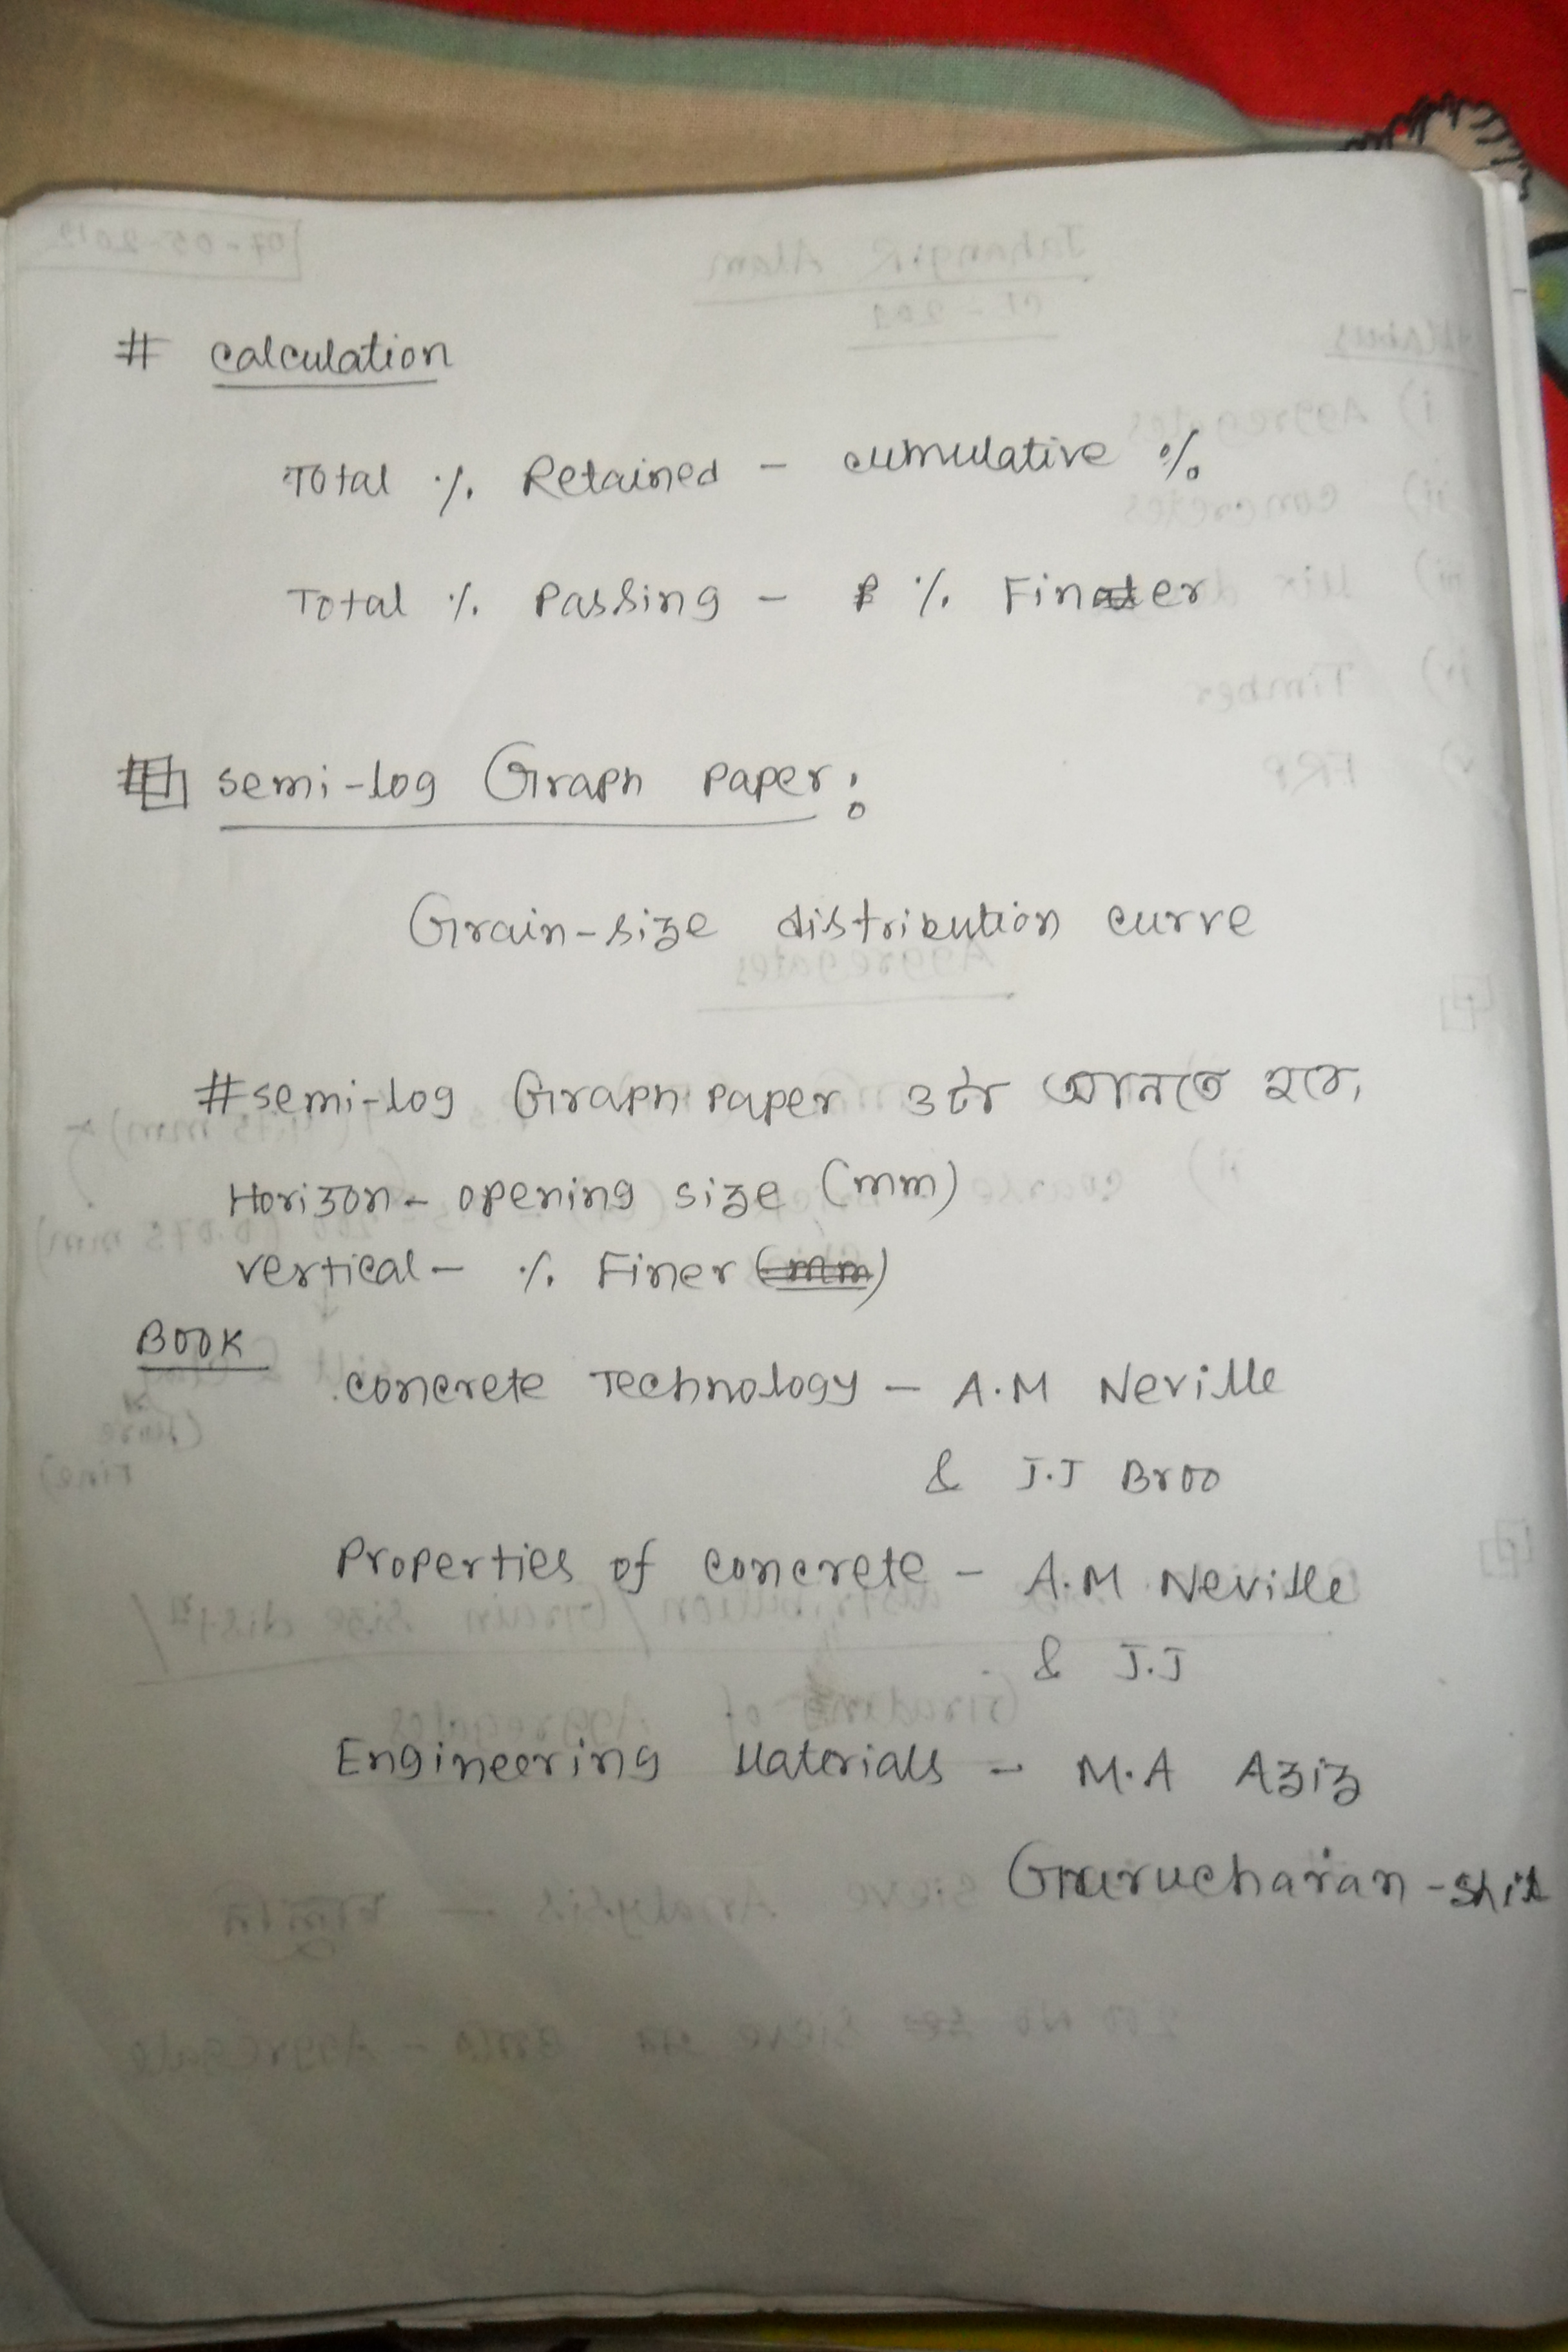 # calculation
Total % Retained - cumulative %
Total % Passing - % Finer
semi-log Graph Paper:
Grain-size distribution curve
# semi-log Graph paper ৩টা আনতে হবে,
Horizon - opening size (mm)
vertical - % Finer
BOOK
concrete Technology - A.M Neville
& J.J Broo
Properties of concrete - A.M Neville
& J.J
Engineering Materials - M.A Aziz
Gurucharan -